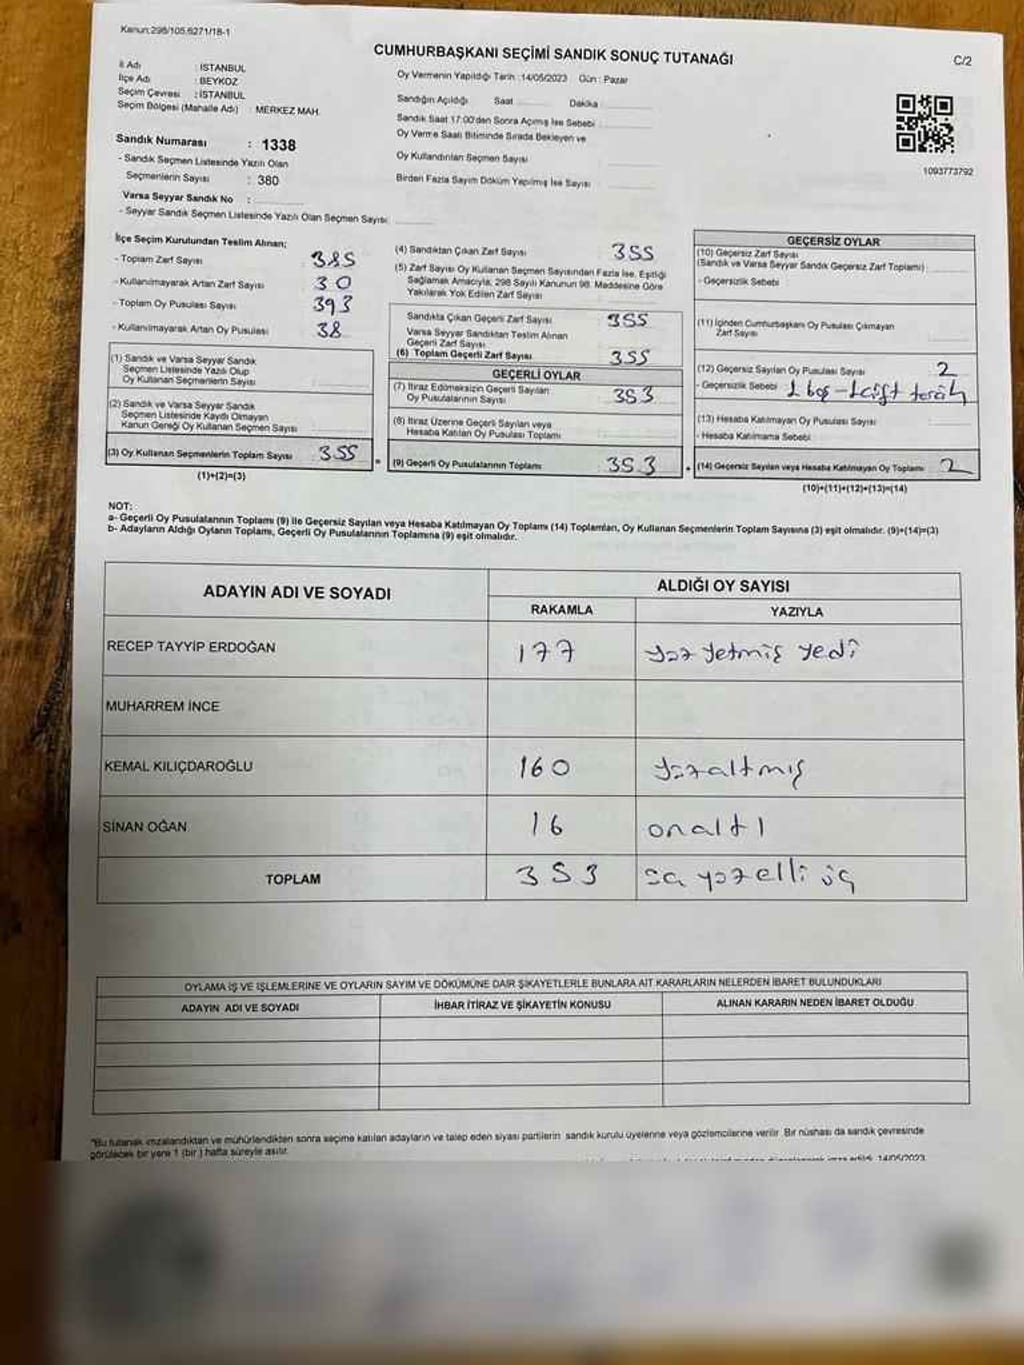 Kanun:298/105,6271/18-1
CUMHURBAŞKANI SEÇİMİ SANDIK SONUÇ TUTANAĞI
C/2
İl Adı : İSTANBUL
İlçe Adı : BEYKOZ
Seçim Çevresi : İSTANBUL
Seçim Bölgesi (Mahalle Adı) : MERKEZ MAH.
Oy Vermenin Yapıldığı Tarih :14/05/2023 Gün : Pazar
Sandığın Açıldığı Saat Dakika
Sandık Saat 17:00'den Sonra Açımış İse Sebebi
Oy Verme Saati Bitiminde Sırada Bekleyen ve
Oy Kullandırılan Seçmen Sayısı
Birden Fazla Sayım Döküm Yapılmış İse Sayısı
1093773792
Sandık Numarası : 1338
- Sandık Seçmen Listesinde Yazılı Olan
Seçmenlerin Sayısı : 380
Varsa Seyyar Sandık No :
- Seyyar Sandık Seçmen Listesinde Yazılı Olan Seçmen Sayısı:
İlçe Seçim Kurulundan Teslim Alınan;
- Toplam Zarf Sayısı 385
- Kullanılmayarak Artan Zarf Sayısı 30
- Toplam Oy Pusulası Sayısı 393
- Kullanılmayarak Artan Oy Pusulası 38
(1) Sandık ve Varsa Seyyar Sandık
Seçmen Listesinde Yazılı Olup
Oy Kullanan Seçmenlerin Sayısı
(2) Sandık ve Varsa Seyyar Sandık
Seçmen Listesinde Kaydı Olmayan
Kanun Gereği Oy Kullanan Seçmen Sayısı
(3) Oy Kullanan Seçmenlerin Toplam Sayısı 355
(1)+(2)=(3)
(4) Sandıktan Çıkan Zarf Sayısı 355
(5) Zarf Sayısı Oy Kullanan Seçmen Sayısından Fazla İse, Eşitliği
Sağlamak Amacıyla, 298 Sayılı Kanunun 98. Maddesine Göre
Yakılarak Yok Edilen Zarf Sayısı
Sandıkta Çıkan Geçerli Zarf Sayısı 355
Varsa Seyyar Sandıktan Teslim Alınan
Geçerli Zarf Sayısı
(6) Toplam Geçerli Zarf Sayısı 355
GEÇERLİ OYLAR
(7) İtiraz Edilmeksizin Geçerli Sayılan
Oy Pusulalarının Sayısı 353
(8) İtiraz Üzerine Geçerli Sayılan veya
Hesaba Katılan Oy Pusulası Toplamı
= (9) Geçerli Oy Pusulalarının Toplamı 353
GEÇERSİZ OYLAR
(10) Geçersiz Zarf Sayısı
(Sandık ve Varsa Seyyar Sandık Geçersiz Zarf Toplamı)
- Geçersizlik Sebebi
(11) İçinden Cumhurbaşkanı Oy Pusulası Çıkmayan
Zarf Sayısı
(12) Geçersiz Sayılan Oy Pusulası Sayısı 2
- Geçersizlik Sebebi 1 boş - 1 çift tercih
(13) Hesaba Katılmayan Oy Pusulası Sayısı
- Hesaba Katılmama Sebebi
+ (14) Geçersiz Sayılan veya Hesaba Katılmayan Oy Toplamı 2
(10)+(11)+(12)+(13)=(14)
NOT:
a- Geçerli Oy Pusulalarının Toplamı (9) ile Geçersiz Sayılan veya Hesaba Katılmayan Oy Toplamı (14) Toplamları, Oy Kullanan Seçmenlerin Toplam Sayısına (3) eşit olmalıdır. (9)+(14)=(3)
b- Adayların Aldığı Oyların Toplamı, Geçerli Oy Pusulalarının Toplamına (9) eşit olmalıdır.
ADAYIN ADI VE SOYADI
ALDIĞI OY SAYISI
RAKAMLA YAZIYLA
RECEP TAYYİP ERDOĞAN 177 yüz yetmiş yedi
MUHARREM İNCE
KEMAL KILIÇDAROĞLU 160 yüzaltmış
SİNAN OĞAN 16 onaltı
TOPLAM 353 üç yüzelli üç
OYLAMA İŞ VE İŞLEMLERİNE VE OYLARIN SAYIM VE DÖKÜMÜNE DAİR ŞİKAYETLERLE BUNLARA AİT KARARLARIN NELERDEN İBARET BULUNDUKLARI
ADAYIN ADI VE SOYADI İHBAR İTİRAZ VE ŞİKAYETİN KONUSU ALINAN KARARIN NEDEN İBARET OLDUĞU
"Bu tutanak imzalandıktan ve mühürlendikten sonra seçime katılan adayların ve talep eden siyasi partilerin sandık kurulu üyelerine veya gözlemcilerine verilir. Bir nüshası da sandık çevresinde
görülecek bir yere 1 (bir) hafta süreyle asılır.
14/05/2023